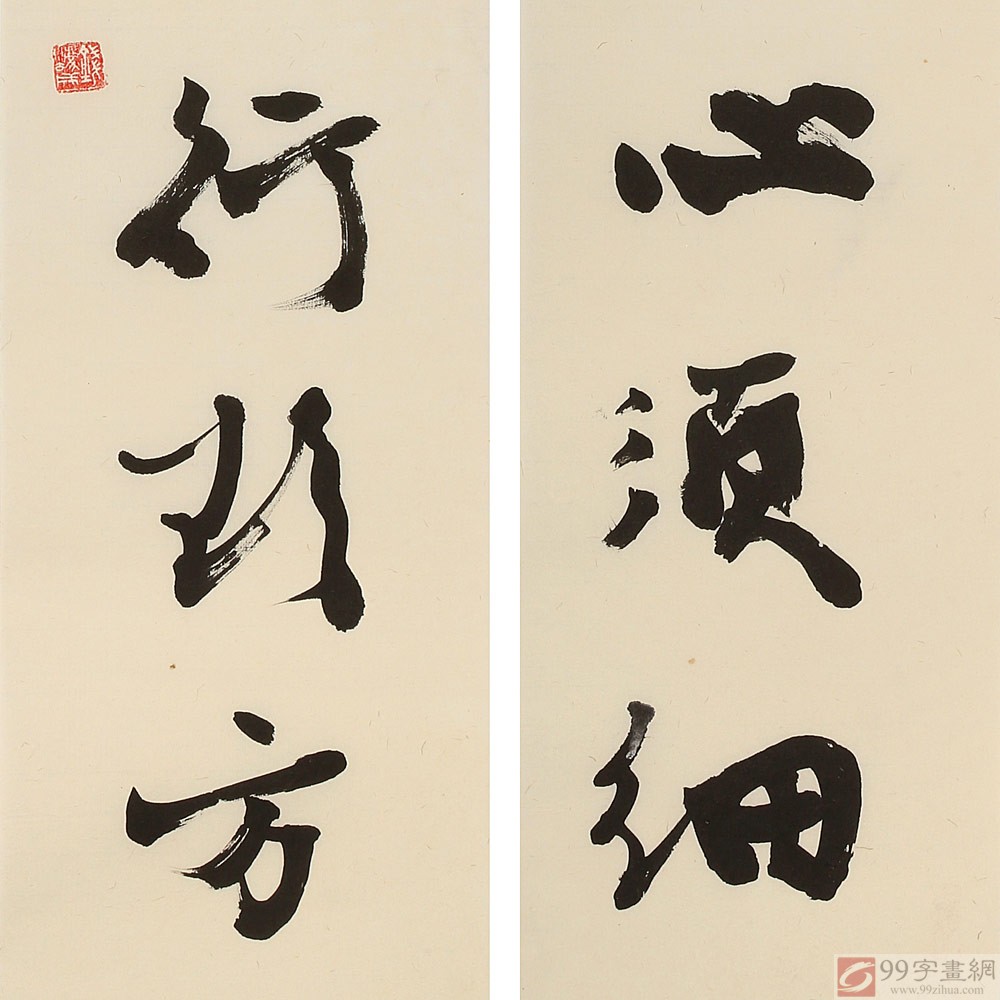 心須細
行方
99字畫網
www.99zihua.com